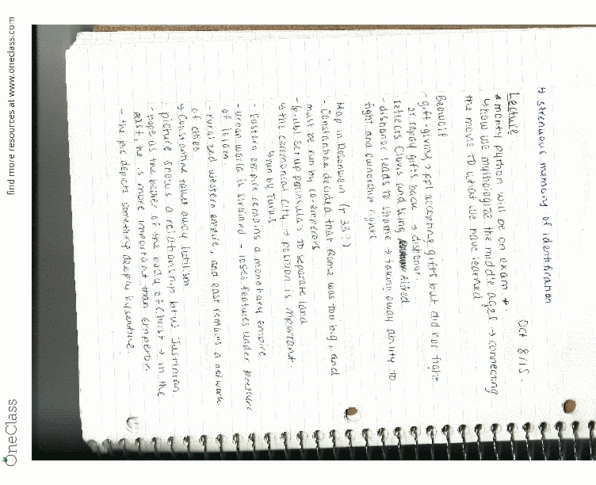 find more resources at www.oneclass.com
OneClass
↳ strenuous memory of identification
Oct 8/15.
Lecture
* monty python will be on exam *
↳ how we mythologize the middle ages → connecting
the movie to what we have learned
Beowulf
- gift-giving → ppl accepting gifts but did not fight
or repay gifts back → dishonor
relics Clovis and King Alfred
- dishonor leads to shame → taking away ability to
fight and ownership rights
Map in Rosenwein (p. 33?)
· Constantine decided that Rome was too big, and
must be run by co-emperors
set up peninsula's to separate land
↳ the ceremonial city → position is important
run by Turks
· Eastern empire remains a monetary empire
- Urban world is drained - loses features under pressure
of Islam
- ruralized western empire, and east remains a network
of cities
↳ Constantine takes away
picture shows a relationship btw Justinian
· pope as the power of the body of Christ → in the
he is more important than emperor
- the pic depicts something deeply byzantine